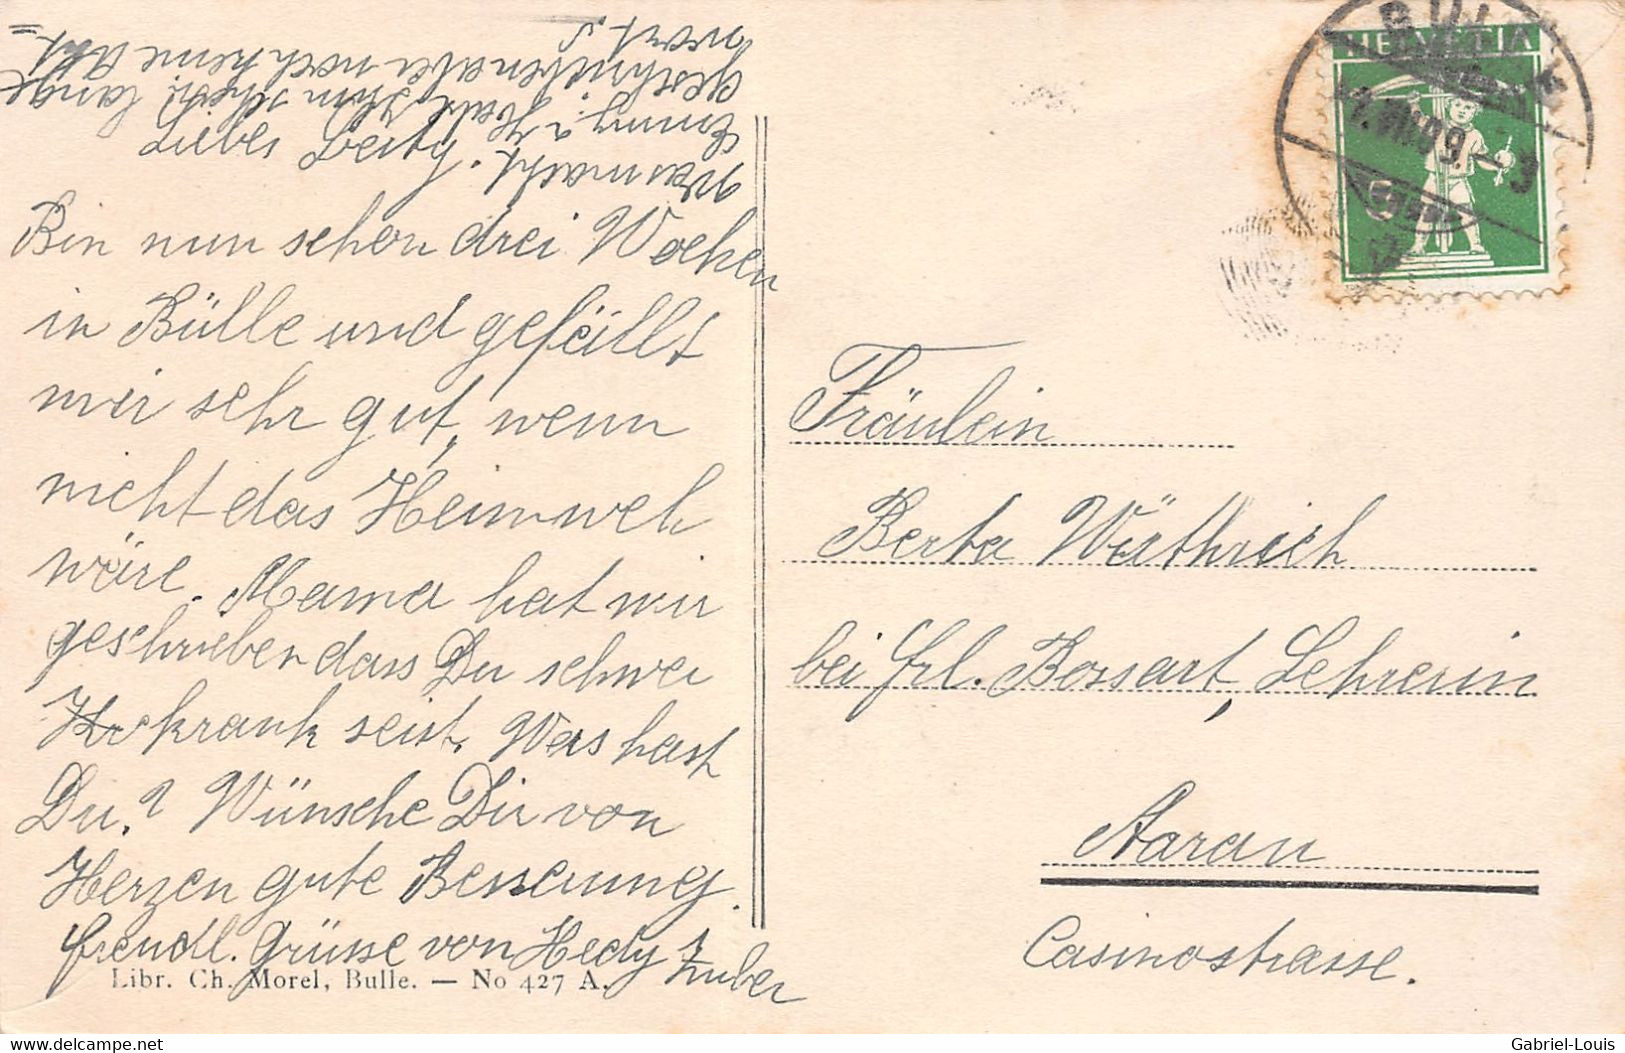 Liebes Berty!
Bin nun schon drei Wochen
in Bülle und gefällt
mir sehr gut, wenn
nicht das Heimweh
wäre. Mama hat mir
geschrieben dass Du schwer
krank seist. Was hast
Du? Wünsche Dir von
Herzen gute Besserung.
freudl. Grüsse von Hedy Zuber
Was macht
Emmy? Habe ihm schon lange
geschrieben aber noch keine Ant=
wort.
Libr. Ch. Morel, Bulle. — No 427 A.
HELVETIA
Fräulein
Berta Wüthrich
bei Frl. Bossart, Lehrerin
Aarau
Casinostrasse.
delcampe.net
Gabriel-Louis